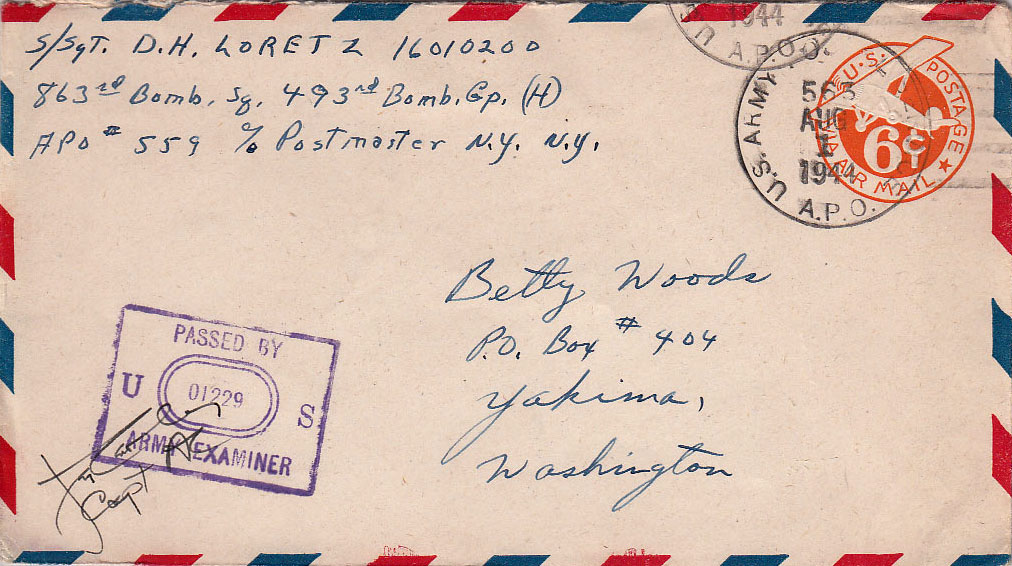 S/Sgt. D.H. LORETZ 16010200
863rd Bomb. Sq. 493rd Bomb. Gp. (H)
APO # 559 % Postmaster N.Y. N.Y.
1944
U
A.P.O.
U.S. ARMY
565
AUG
1
1944
A.P.O.
U.S. POSTAGE
6¢
VIA AIR MAIL
Betty Woods
P.O. Box # 404
Yakima,
Washington
PASSED BY
U 01229 S
ARMY EXAMINER
Capt AC